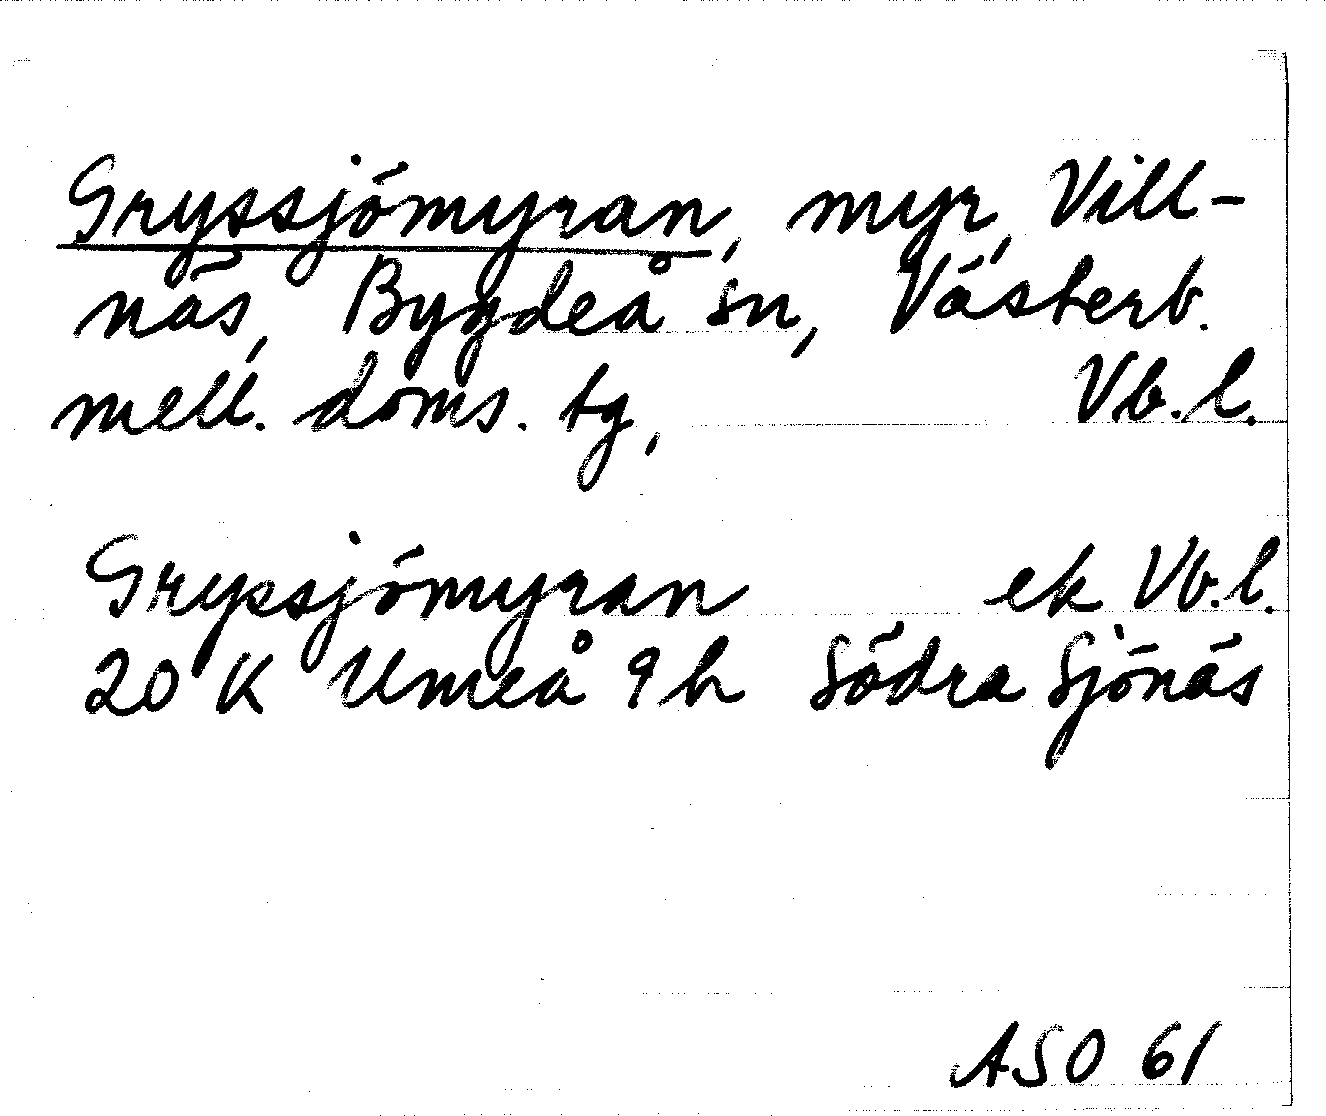 Gryssjömyran, myr, Vill-
näs, Bygdeå sn, Västerb.
mell. doms. tg, Vb.l.
Gryssjömyran ek Vb.l.
20 K Umeå 9 h Södra Sjönäs
ASO 61